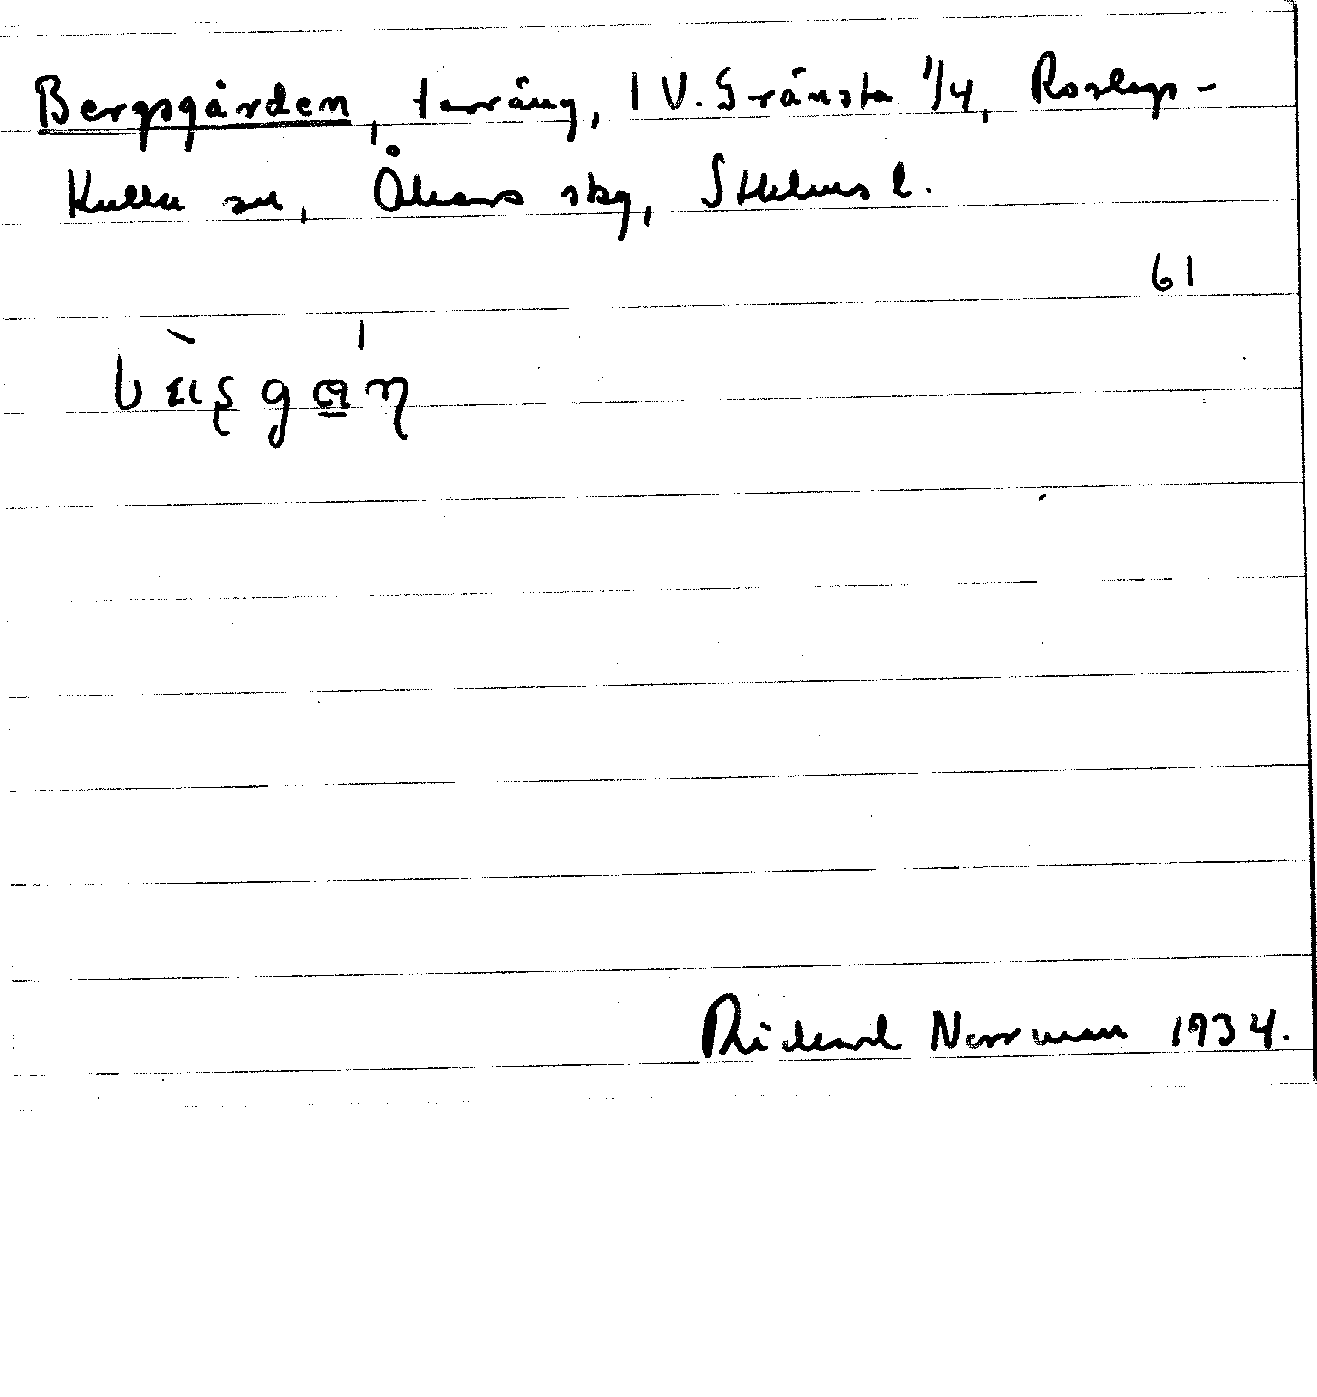 Bergsgården, terräng, 1 V. Gränsta 1/4, Roslags-
Kulla sn, Åkers skg, Sthlms l.
61
Rickard Norrman 1934.